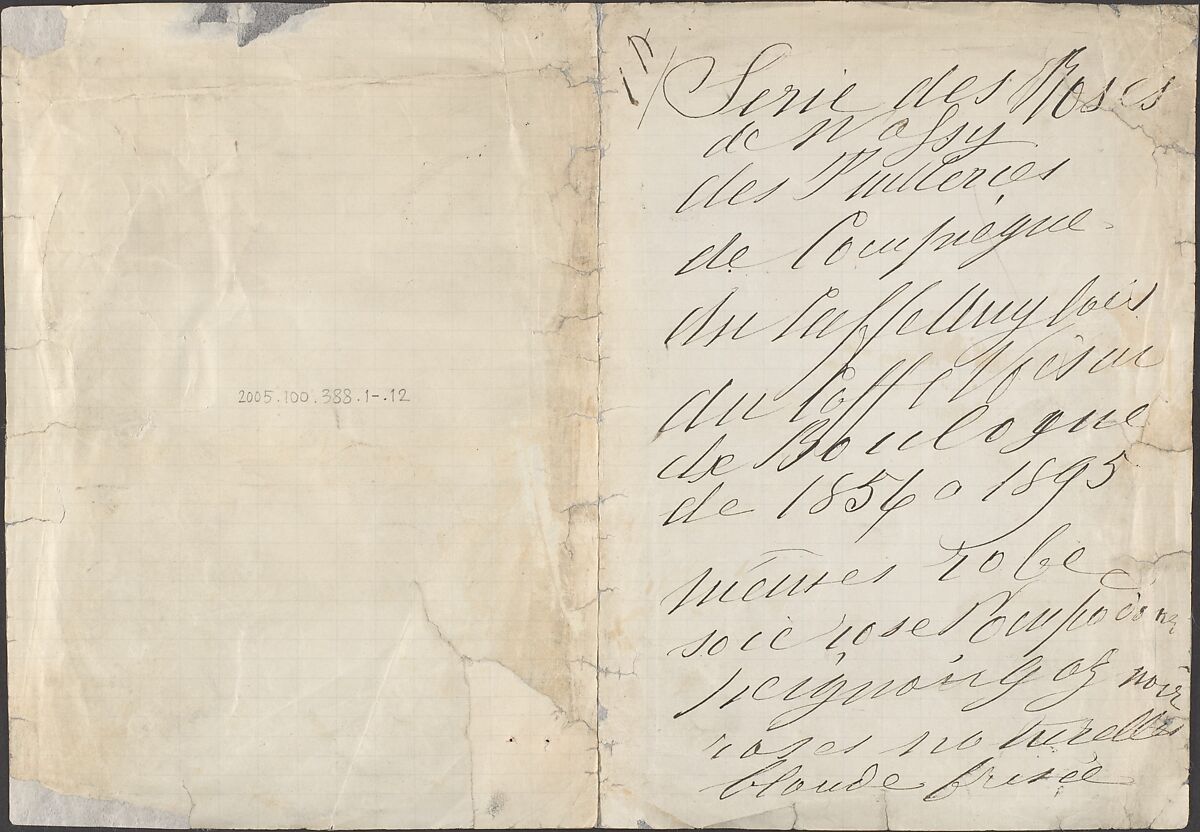 2005.100.388.1-.12
Serie des Roses
de Passy
des Tuilleries
de Compiègne
du Caffe Anglais
du Caffe
de Boulogne
de 1856 a 1895
mêmes robe
soie rose Pompadour
peignoir gaz noir
roses naturelles
blonde frisée